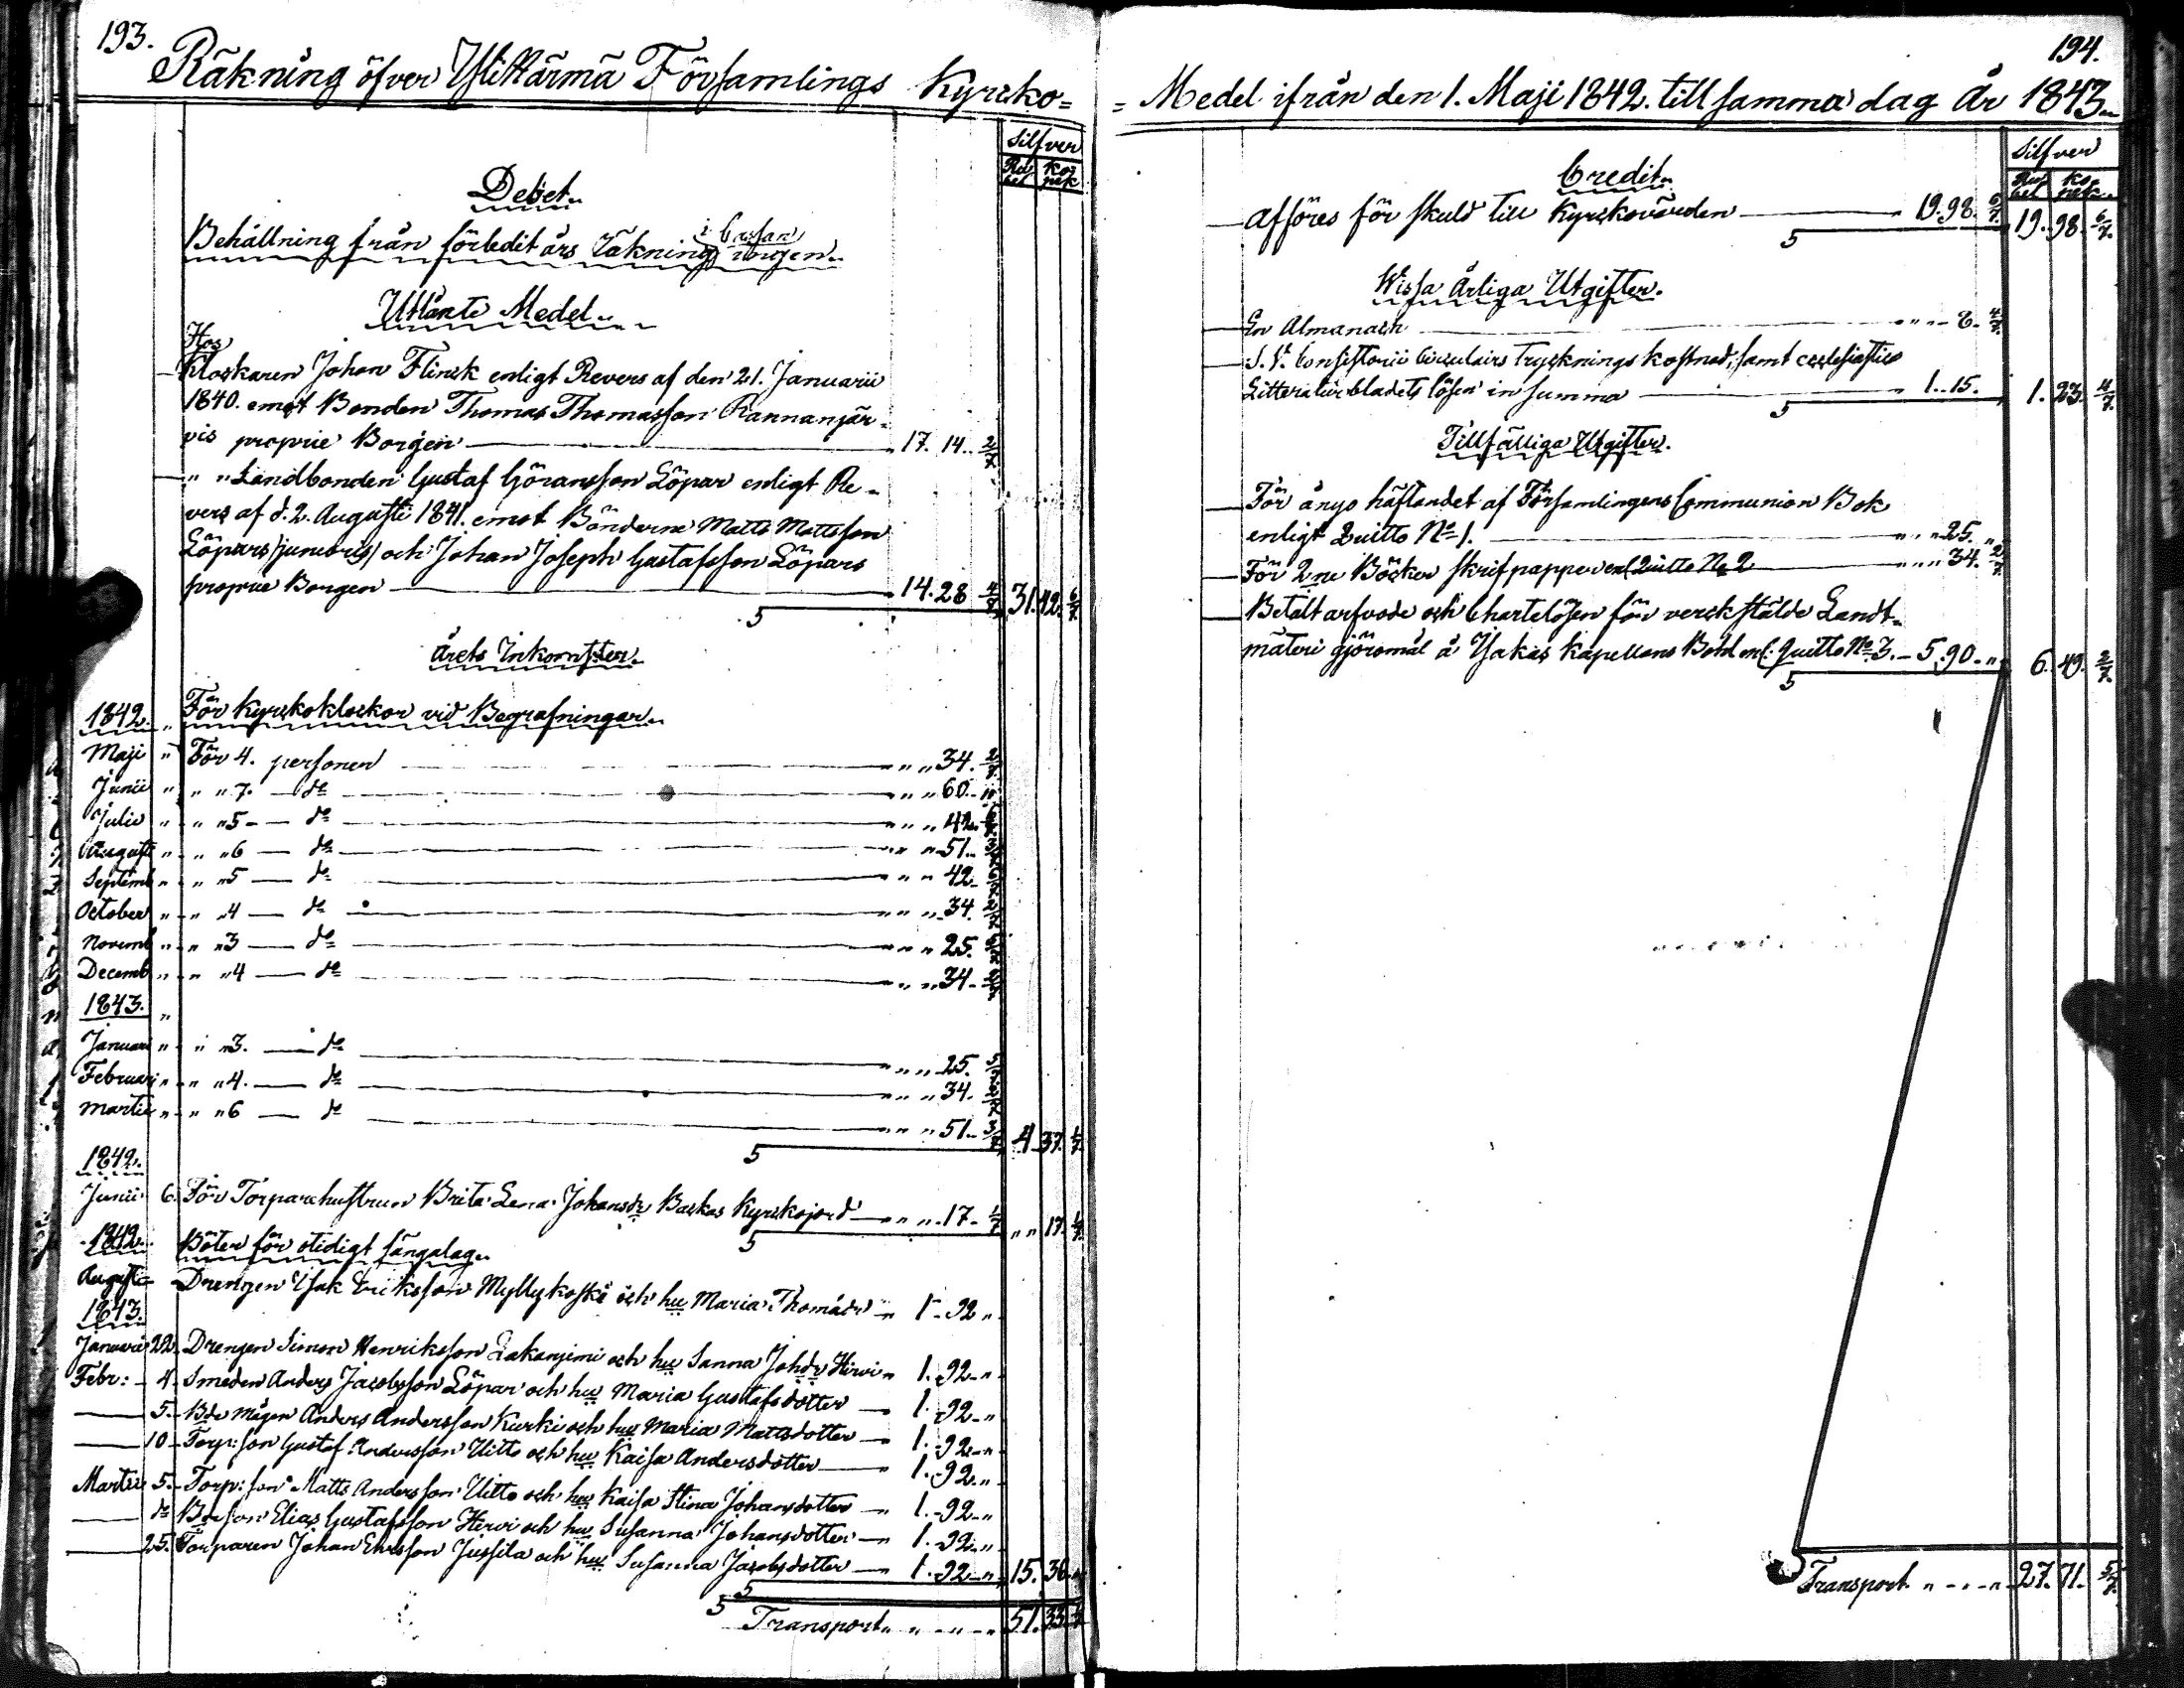 193.
Räkning öfver Ylihärmä Församlings Kyrko=
Silfver
Rubel Kopek
Debet.
Behållning från förledit års Räkning i Cassan ingen.
Utlånte Medel.
Hos
Klockaren Johan Flinck enligt Revers af den 21. Januarii
1840. emot Bonden Thomas Thomasson Rannanjär-
vis proprie Borgen 17. 14. 2/7
" " Landbonden Gustaf Göransson Löpar enligt Re-
vers af d. 2. Augusti 1841. emot Bönderne Matts Mattsson
Löpars /junioris/ och Johan Joseph Gustafsson Löpars
proprie Borgen 14. 28 4/7 31. 42. 6/7
Årets Inkomster.
1842. För Kyrkoklockor vid Begrafningar.
Maji " För 4. personer " " 34. 2/7
Junii " " " 7. do " " 60. "
Julii " " " 5 - do " " 42. 6/7
Augusti " " " 6 - do " " 51. 3/7
Septemb " " " 5 - do " " 42. 6/7
October " " " 4 - do " " 34. 2/7
Novemb " " " 3 - do " " 25. 5/7
Decemb " " " 4 - do " " 34. 2/7
1843. "
Januari " " " 3. - do " " 25. 5/7
Februari " " " 4. - do " " 34. 2/7
Martii " " " 6 - do " " 51. 3/7 4 37. 1/7
1842.
Junii 6. För Torparehustrun Brita Lena Johansdr Backas Kyrkojord " " 17. 1/7 " " 17. 1/7
1842. Böter för otidigt sängalag.
Augusti - Drengen Isak Eriksson Myllykoski och hu Maria Thomädr 1. 92 "
1843.
Januarii 22. Drengen Simon Henriksson Lakaniemi och hu Sanna Johdr Hirvi 1. 92 "
Febr: - 4. Smeden Anders Jacobsson Löpar och hu Maria Gustafsdotter 1. 92 "
5. Bde mågen Anders Andersson Kurki och hu Maria Mattsdotter 1. 92 "
10 - Torp: son Gustaf Andersson Uitto och hu Kaisa Andersdotter 1. 92 "
Martii 5. - Torp: son Matts Andersson Uitto och hu Kaisa Stina Johansdotter 1. 92 "
do Bdeson Elias Gustafsson Hirvi och hu Susanna Johansdotter 1. 92 "
25. Torparen Johan Ersson Jussila och hu Susanna Jacobsdotter 1. 92 " 15. 36. "
Transport " " " " 51. 33 1/7
194.
= Medel ifrån den 1. Maji 1842. till samma dag År 1843.
Silfver
Rubel Kopek
Credit.
Afföres för skuld till Kyrkovärden 19. 98. 6/7 19. 98. 6/7
Wissa Årliga Utgifter.
En Almanach " " " 8. 4/7
S. V. Consistorii Circulairs Trycknings kostnad, samt ecclesiastica
Litteratur bladets lösen in summa 1. 15. 1. 23. 4/7
Tillfälliga Utgifter.
För ånyo häftandet af Församlingens Communion Bok
enligt Quitto No 1. " " 25. "
För 2ne Böcker skrifpapper enl Quitto No 2 " " 34. 2/7
Betalt arfvode och Chartelösen för verckstälde Landt-
mäteri gjöromål å Ysakas Kapellans Bohl enl: Quitto No 3. - 5. 90. " 6. 49. 2/7
Transport " " " " 27. 71. 5/7